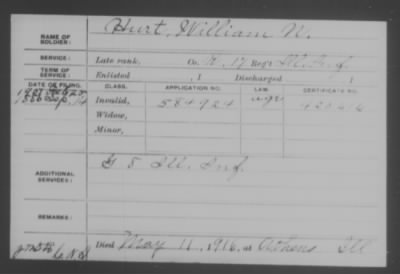 NAME OF SOLDIER: Hurt, William W.
SERVICE: Late rank, Co. K, 17 Reg't Ill. Inf.
TERM OF SERVICE: Enlisted , 1 Discharged , 1
DATE OF FILING. CLASS. APPLICATION NO. LAW. CERTIFICATE NO.
Invalid, 584924
Widow,
Minor,
ADDITIONAL SERVICES: G 5 Ill. Inf.
REMARKS:
Died May 11, 1916, at Athens Ill